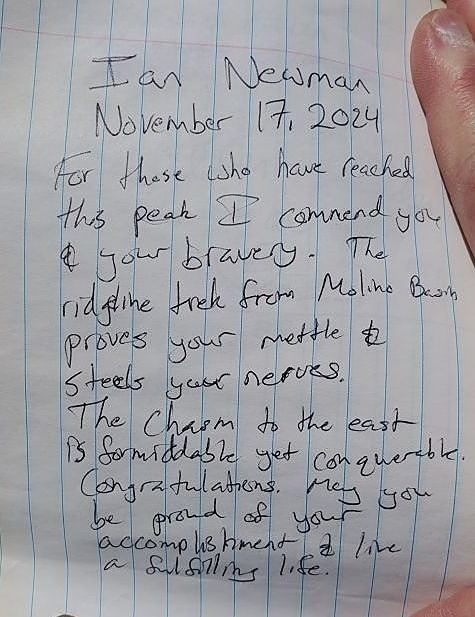 Ian Newman
November 17, 2024
For those who have reached
this peak I commend you
& your bravery. The
ridgline trek from Molino Basin
proves your mettle &
steels your nerves.
The Chasm to the east
is formiddable yet conquerable.
Congratulations. May you
be proud of your
accomplishment & live
a fulfilling life.